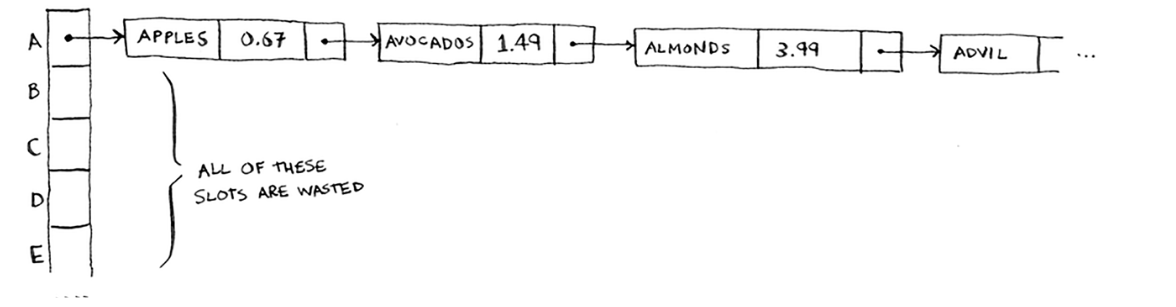 A
APPLES 0.67
AVOCADOS 1.49
ALMONDS 3.99
ADVIL ...
B
C
D
E
ALL OF THESE
SLOTS ARE WASTED